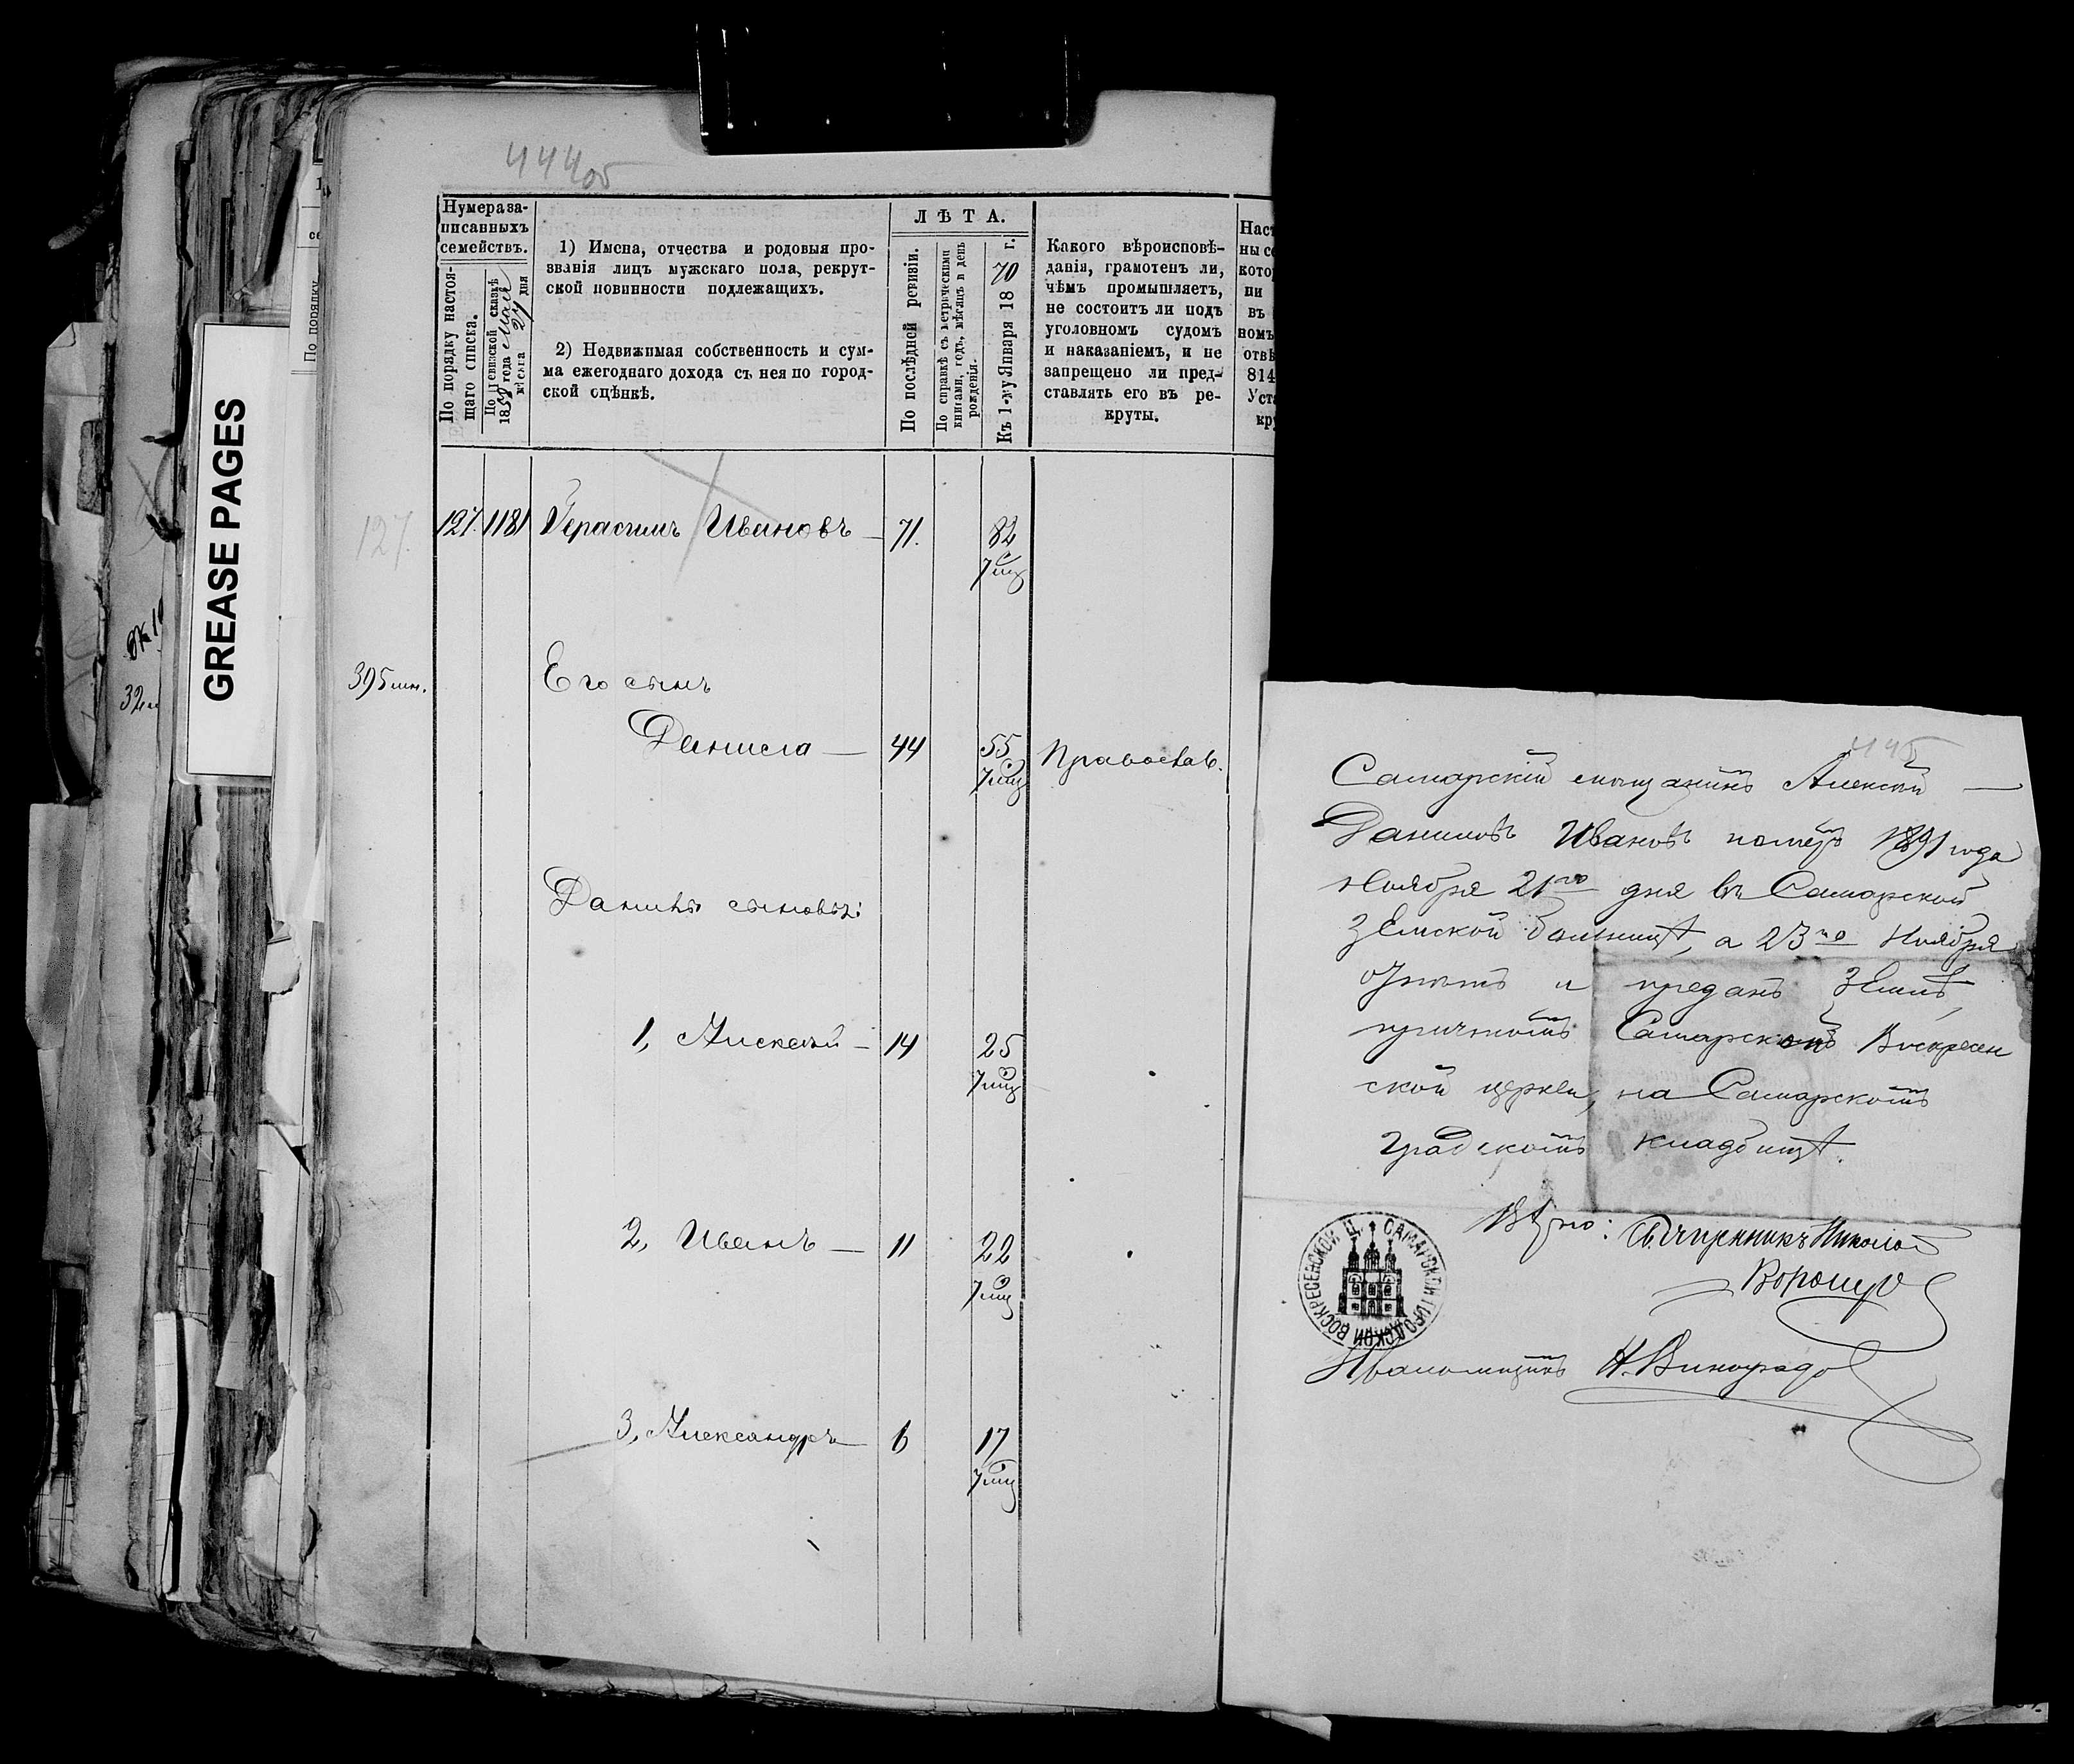 444об
Нумера за-
писанныхъ
семействъ.
По порядку настоя-
щаго списка.
По ревизской сказкѣ
1858 года Мая
мѣсяца 24 дня
1) Имена, отчества и родовыя про-
званія лицъ мужскаго пола, рекрут-
ской повинности подлежащихъ.
2) Недвижимая собственность и сум-
ма ежегоднаго дохода съ нея по город-
ской оцѣнкѣ.
ЛѢТА.
По послѣдней ревизіи.
По справкѣ съ метрическими
книгами, годъ, мѣсяцъ и день
рожденія.
Къ 1-му Января 1870 г.
Какого вѣроисповѣ-
данія, грамотенъ ли,
чѣмъ промышляетъ,
не состоитъ ли подъ
уголовномъ судомъ
и наказаніемъ, и не
запрещено ли пред-
ставлять его въ ре-
круты.
GREASE PAGES
По порядку
127. 127. 1181 Герасимъ Ивановъ — 71. 82
7 мц
395 мн. Его сынъ
Данила — 44 55 Православ.
7 мц
Данилы сыновья:
1, Алексѣй — 14 25
7 мц
2, Иванъ — 11 22
7 мц
3, Александръ — 6 17
7 мц
445
Самарскій мѣщанинъ Алексѣй —
Даниловъ Ивановъ померъ 1891 года
Ноября 21го дня въ Самарской
Земской больницѣ, а 23го Ноября
отпѣтъ и преданъ землѣ,
причтомъ Самарской Воскресен
ской церкви, на Самарскомъ
градскомъ кладбищѣ.
Вѣрно: Священникъ Николай
Воронцов
САМАРСКОЙ ГОРОДСКОЙ ВОСКРЕСЕНСКОЙ Ц.
Псаломщикъ Н. Виноградов